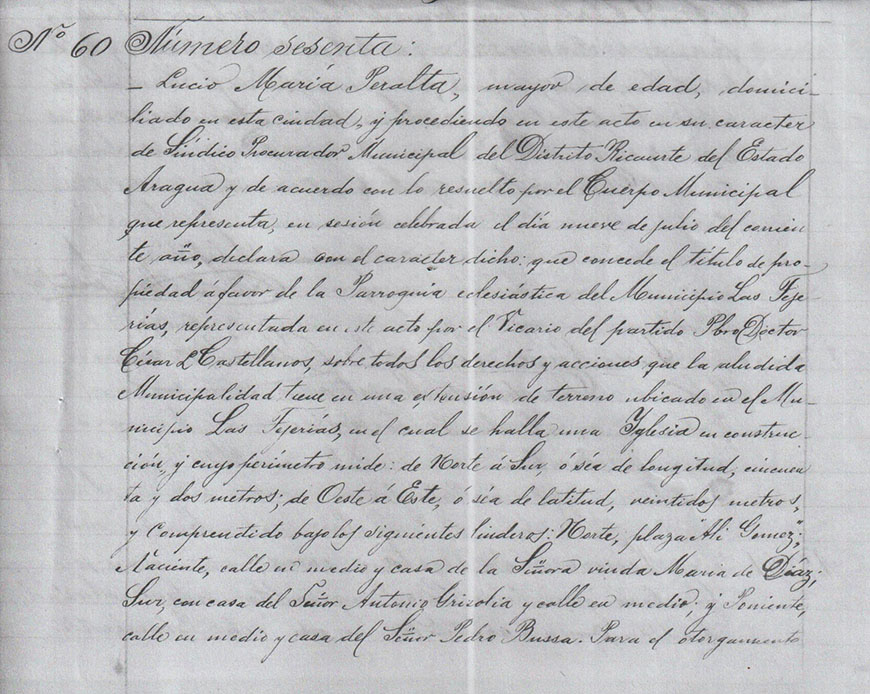 Nº 60 Número sesenta:
– Lucio María Peralta, mayor de edad, domici-
liado en esta ciudad, y procediendo en este acto en su caracter
de Síndico Procurador Municipal del Distrito Ricaurte del Estado
Aragua y de acuerdo con lo resuelto por el Cuerpo Municipal
que representa, en sesión celebrada el día nueve de julio del corrien
te año, declara con el carácter dicho: que concede el título de pro-
piedad á favor de la Parroquia eclesiástica del Municipio Las Teje-
rías, representada en este acto por el Vicario del partido Pbro Doctor
César L Castellanos, sobre todos los derechos y acciones que la aludida
Municipalidad tiene en una extensión de terreno ubicado en el Mu-
nicipio Las Tejerías, en el cual se halla una Yglesia en construc-
ción, y cuyo perímetro mide: de Norte á Sur, ó séa de longitud, cincuen
ta y dos metros; de Oeste á Este, ó séa de latitud, veintidos metros,
y comprendido bajo los siguientes linderos: Norte, plaza "Alí Gomez";
Naciente, calle en medio y casa de la Señora viuda María de Díaz;
Sur, con casa del Señor Antonio Grisolia y calle en medio; y Poniente,
calle en medio y casa del Señor Pedro Bussa. Para el otorgamiento